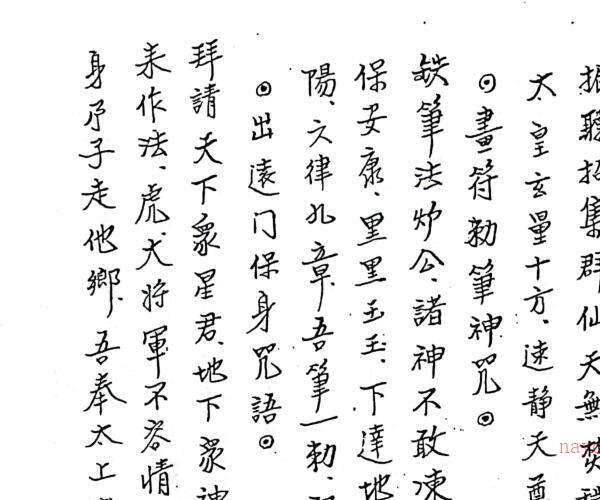 振聽招集群仙天無焚
太皇玄量十方、速静天尊
⊙畫符勅筆神咒⊙
鉄筆法炉公、諸神不敢凍
保安康、里黑玉玉、下達地
陽、六律九章、吾筆一勅、
⊙出遠门保身咒語⊙
拜請天下衆星君、地下衆神
来作法、虎、大将軍不容情
身乃子走他鄉、吾奉太上